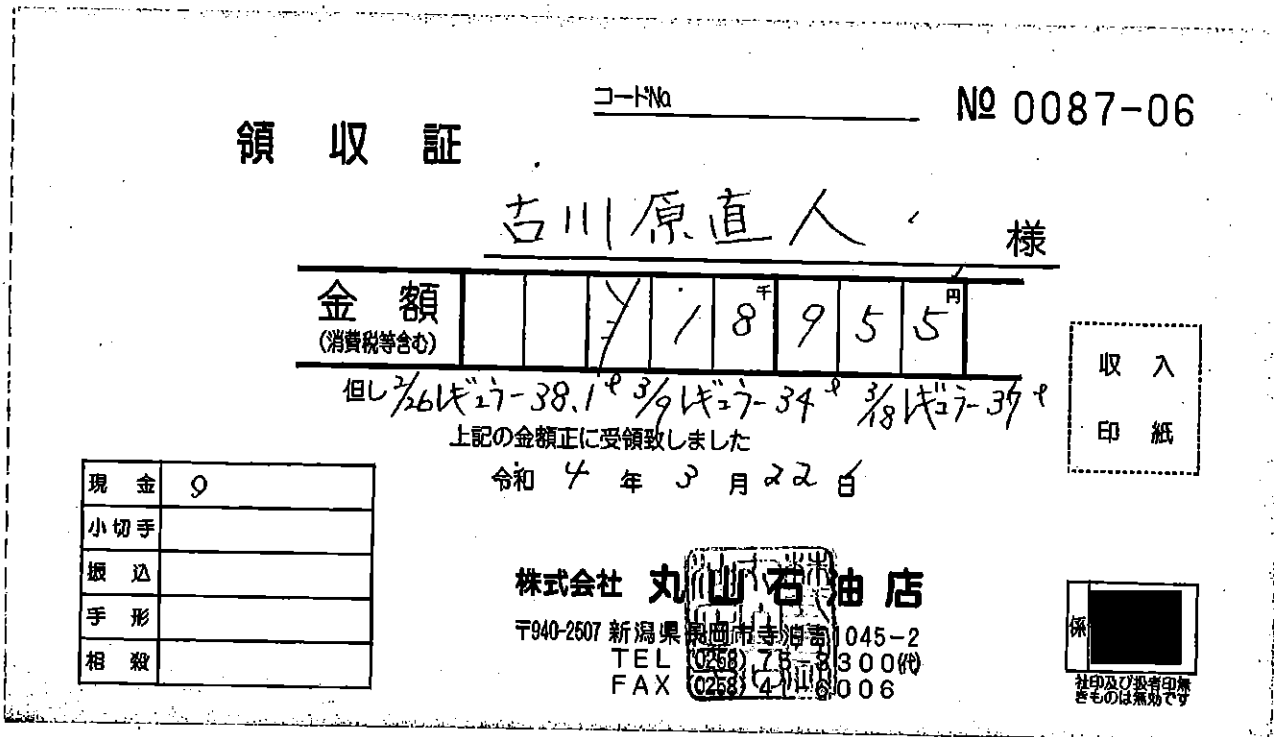 コードNo.
No 0087-06
領収証
古川原直人 様
金額 ¥18955
千 円
(消費税等含む)
但し 2/26レギュラー38.1ℓ 3/9レギュラー34ℓ 3/18レギュラー37ℓ
上記の金額正に受領致しました
令和 4 年 3 月 22 日
収入
印紙
現金
小切手
振込
手形
相殺
株式会社 丸山石油店
〒940-2507 新潟県長岡市寺泊吉1045-2
TEL (0258) 75-3300(代)
FAX (0258) 41-6006
係
社印及び扱者印無
きものは無効です